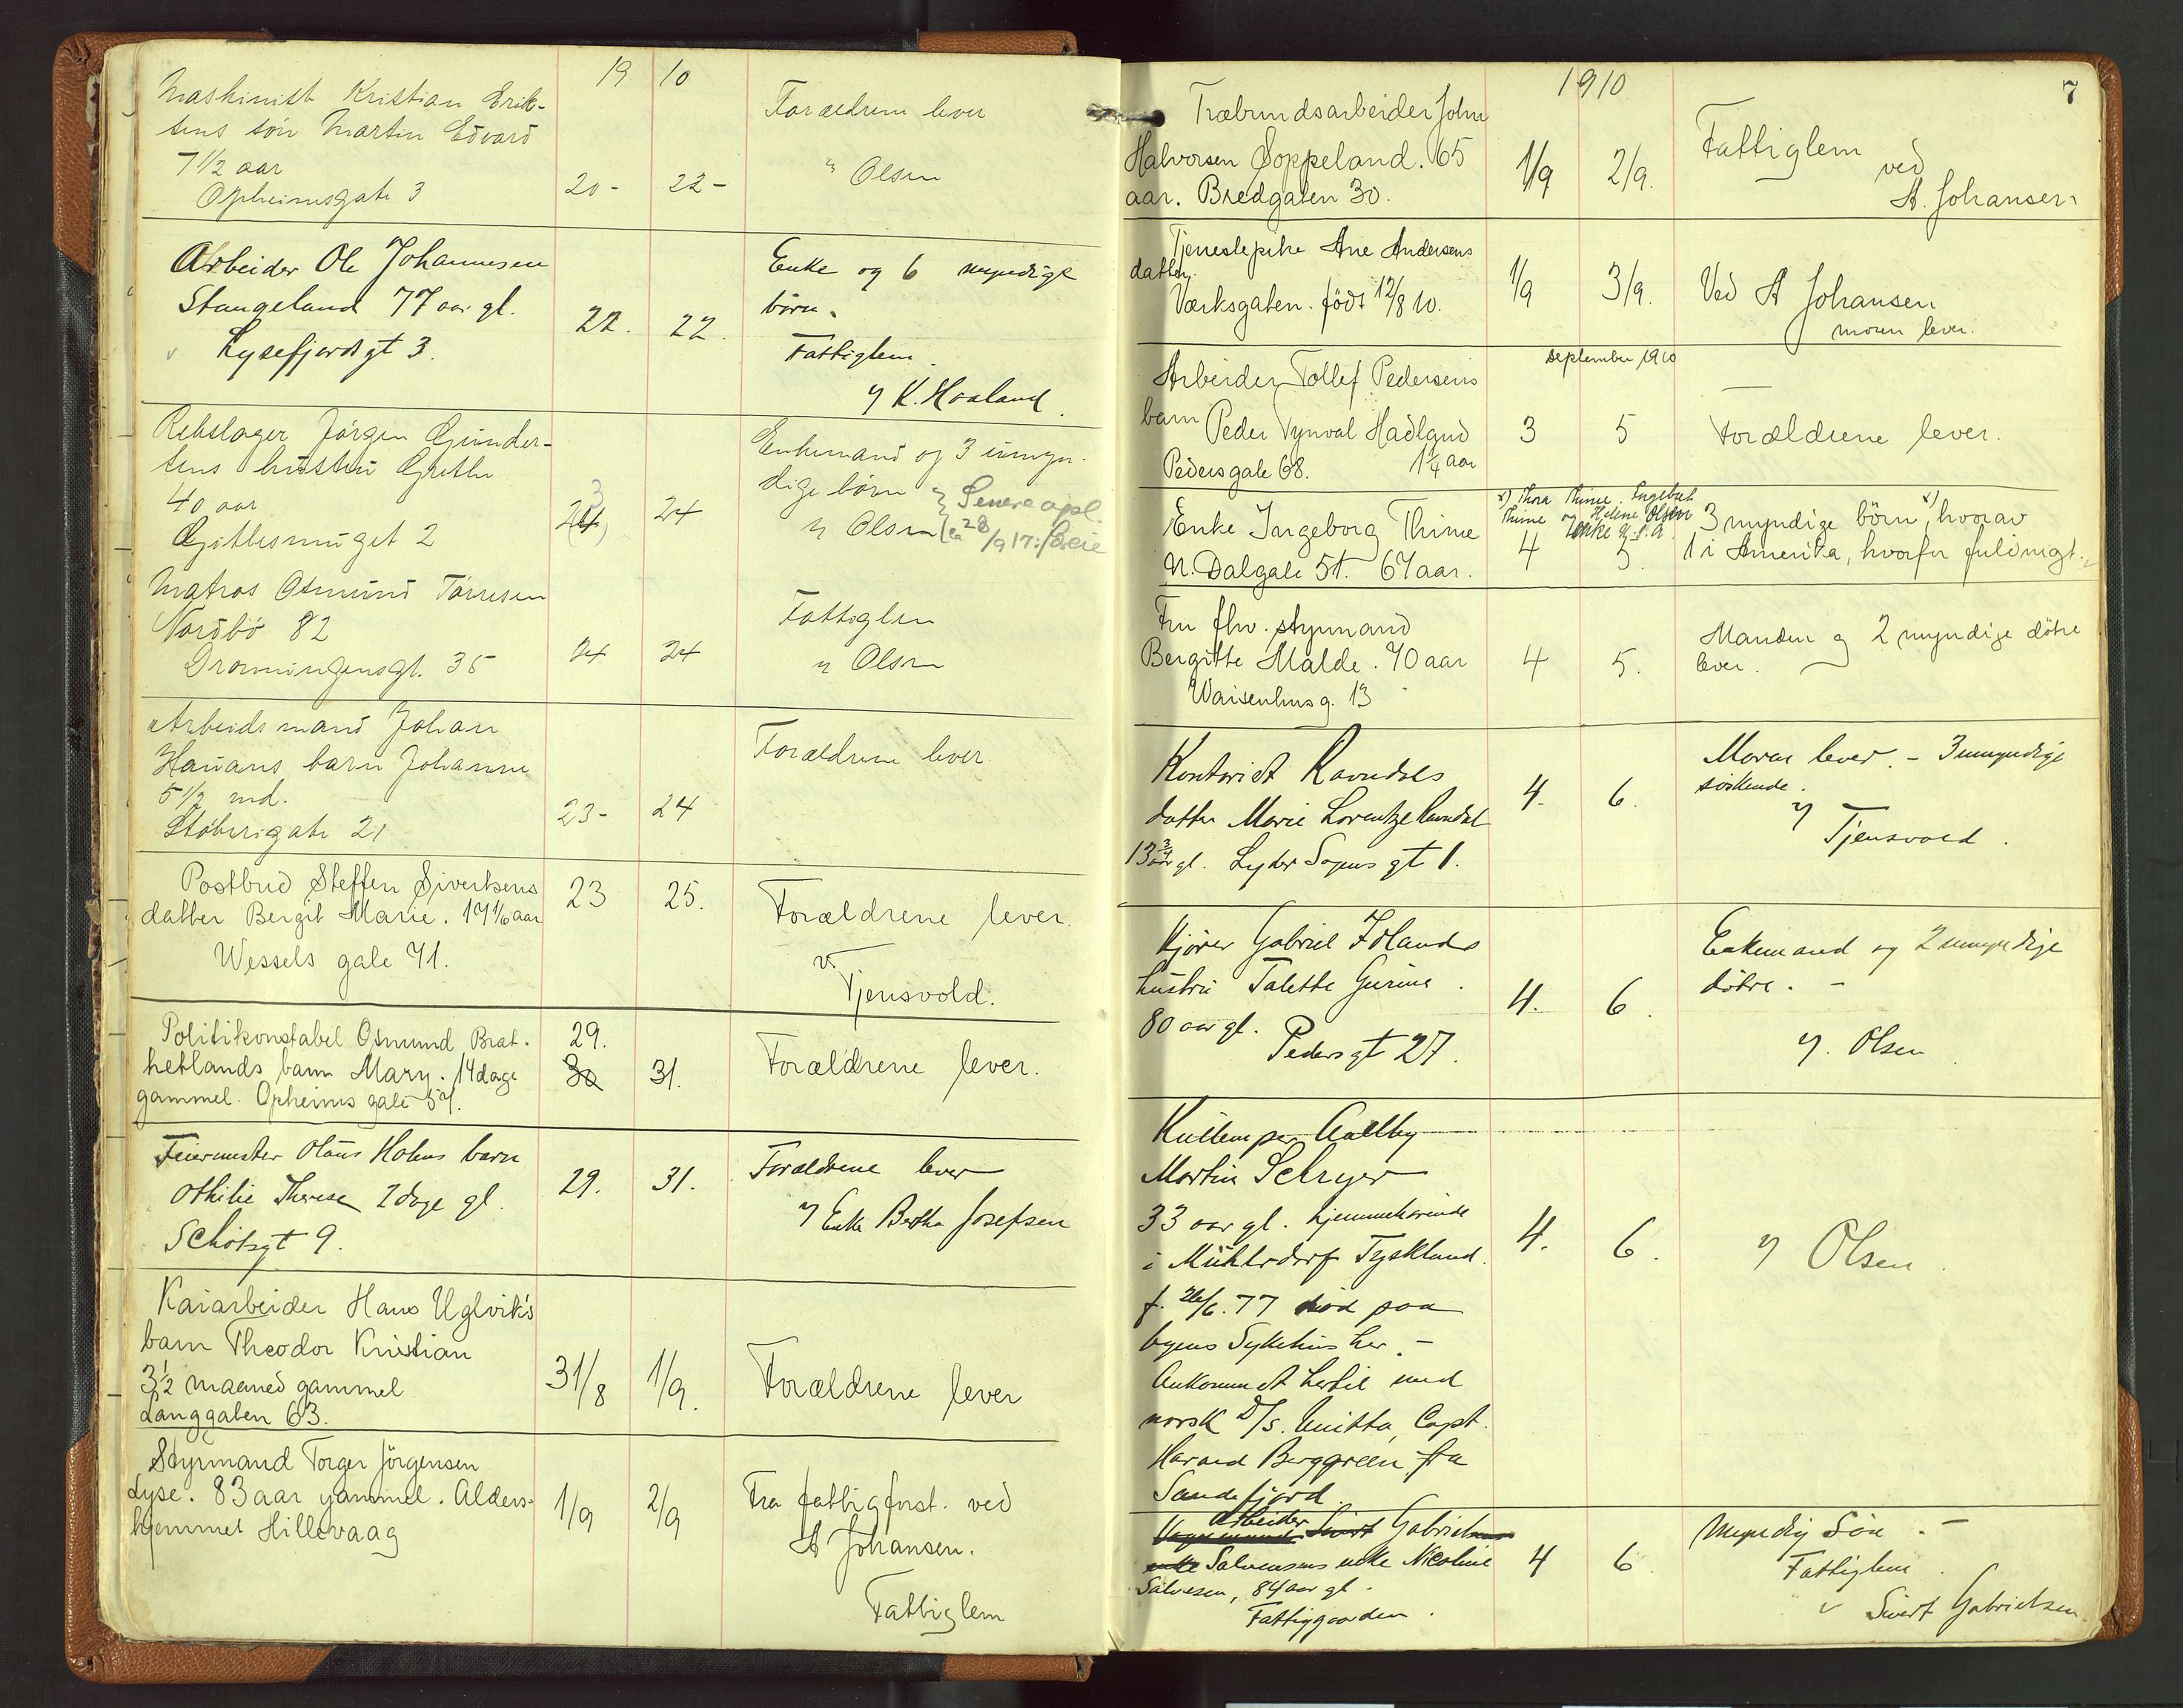 19 10
Maskinist Kristian Erik-
sens søn Martin Edvard
7 1/2 aar
Opheimsgate 3
20 - 22 -
Forældrene lever
v Olsen
Arbeider Ole Johannesen
Stangeland 77 aar gl.
v Lysefjordsgt 3.
22. 22.
Enke og 6 myndige
børn.
Fattiglem.
v K. Haaland.
Rebslager Jørgen Gunder-
sens hustru Grethe
40 aar
Gjetlesmuget 2
24 3 24
Enkemand og 3 umyn-
dige børn
v Olsen
Matros Osmund Tørresen
Nordbø 82
Dronningensgt. 35
24 24
Fattiglem
v Olsen
Arbeidsmand Johan
Hauans barn Johanne
5 1/2 md.
Støberigate 21
23 - 24
Forældrene lever
Postbud Steffen Sivertsens
datter Bergit Marie. 17 1/6 aar
Wessels gate 71.
23 25.
Forældrene lever.
v.
Tjensvold.
Politikonstabel Osmund Brat-
hetlands barn Mary. 14 dage
gammel. Opheims gate 59.
29.
30 31.
Forældrene lever.
Feiermester Olaus Holms barn
Othilie Therese 2 dage gl.
Schiøtzgt 9.
29. 31.
Forældrene lever
v Enke Bertha Josefsen
Kaiarbeider Hans Uglvik's
barn Theodor Kristian
3 1/2 maaned gammel
Langgaten 63.
31/8 1/9.
Forældrene lever
Styrmand Torger Jørgensen
Lyse. 83 aar gammel. Alders-
hjemmet Hillevaag
1/9 2/9
Fra fattigforst. ved
A Johansen.
Fattiglem
1910 7
Træbundsarbeider John
Halvorsen Soppeland. 65
aar. Bredgaten 30.
1/9 2/9.
Fattiglem
ved
A. Johansen
Tjenestepike Ane Andersens
datter.
Værksgaten. født 12/8 10.
1/9 3/9.
Ved A Johansen
moren lever.
september 1910
Arbeider Tollef Pedersens
barn Peder Vynval Hadlgud
Pedersgate 68. 1 1/4 aar
3 5
Forældrene lever.
Enke Ingeborg Thime
N. Dalgate 51. 67 aar.
x) Thora Thime. Ingebret
Thime og Helene Olsen
4 5.
3 myndige børn x), hvorav
1 i Amerika, hvorfor fuldmgt.
Fru fhv. styrmand
Bergitte Malde. 70 aar
Waisenhusg. 13
4 5.
Manden og 2 myndige døtre
lever.
Kontorist Ravndals
datter Marie Lorentze Ravndal
13 3/4 aar gl. Lyder Sagens gt 1.
4. 6.
Moren lever. - 3 umyndige
søskende.
v
Tjensvold.
Kjører Gabriel Idlands
hustru Talette Gurine.
80 aar gl.
Pedersgt 27.
4. 6.
Enkemand og 2 umyndige
døtre. -
v. Olsen
Kullemper
Martin Schryer
33 aar gl. hjemmehørende
i Mühlsdorf Tyskland.
f. 26/6. 77 død paa
byens Sykehus her. -
Ankommet hertil med
norsk D/S. Unitta, Capt.
Harald Berggreen fra
Sandefjord.
4. 6.
v Olsen
Arbeider Sivert Gabrielsens
enke Salvesens enke Nicoline
Salvesen, 84 aar gl.
Fattiggaarden.
4 6.
Myndig Søn. -
Fattiglem.
v Sivert Gabrielsen.